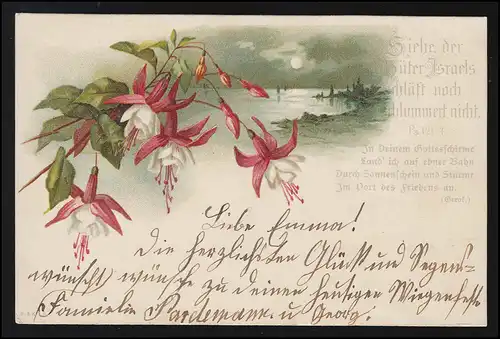 Siehe, der
Hüter Israels
schläft noch
schlummert nicht.
In Deinem Gottesschirme
Land' ich auf ebner Bahn
Durch Sonnenschein und Stürme
Im Port des Friedens an.
(Gerok.)
Liebe Emma!
Die herzlichsten Glück und Segens-
wünsche wünscht zu deinem heutigen Wiegenfeste
Familie u Georg.